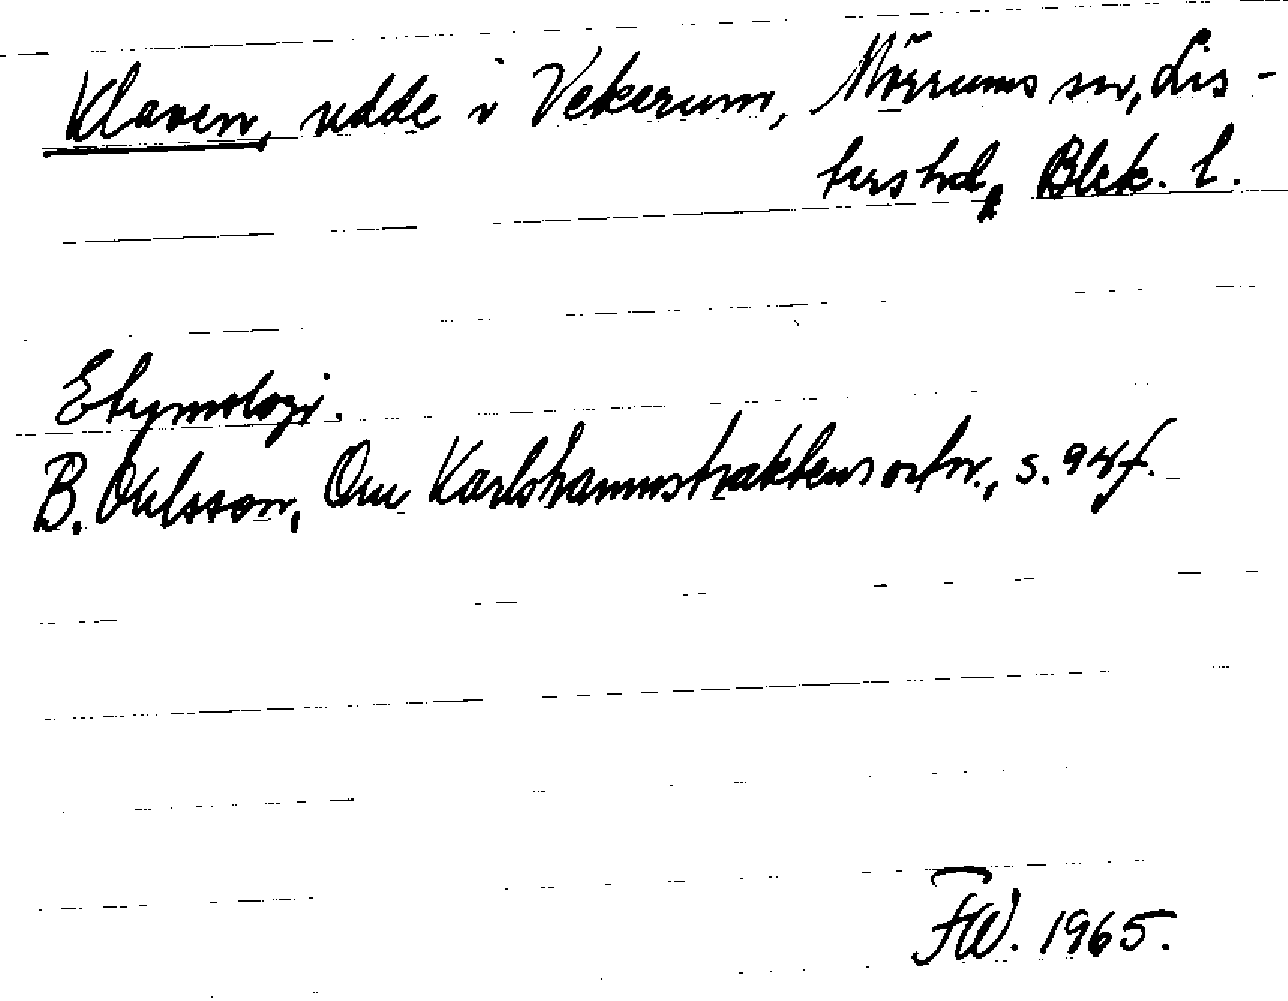 Klaven, udde i Vekerum, Mörrums sn, Lis-
ters hd, Blek. l.
Etymologi.
B. Ohlsson, Om Karlshamnstraktens ortn., s. 94 f.
FW. 1965.